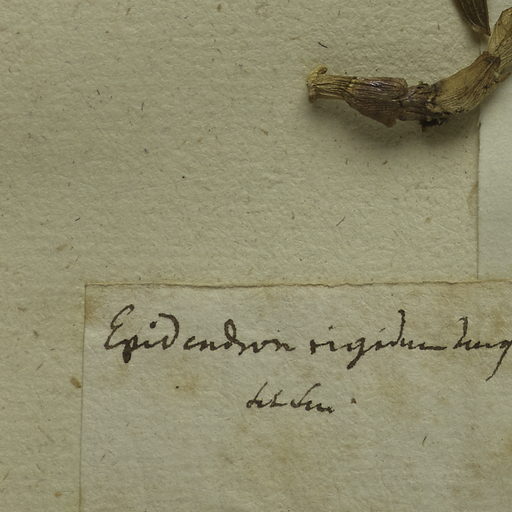 Epidendron rigidum Jacq